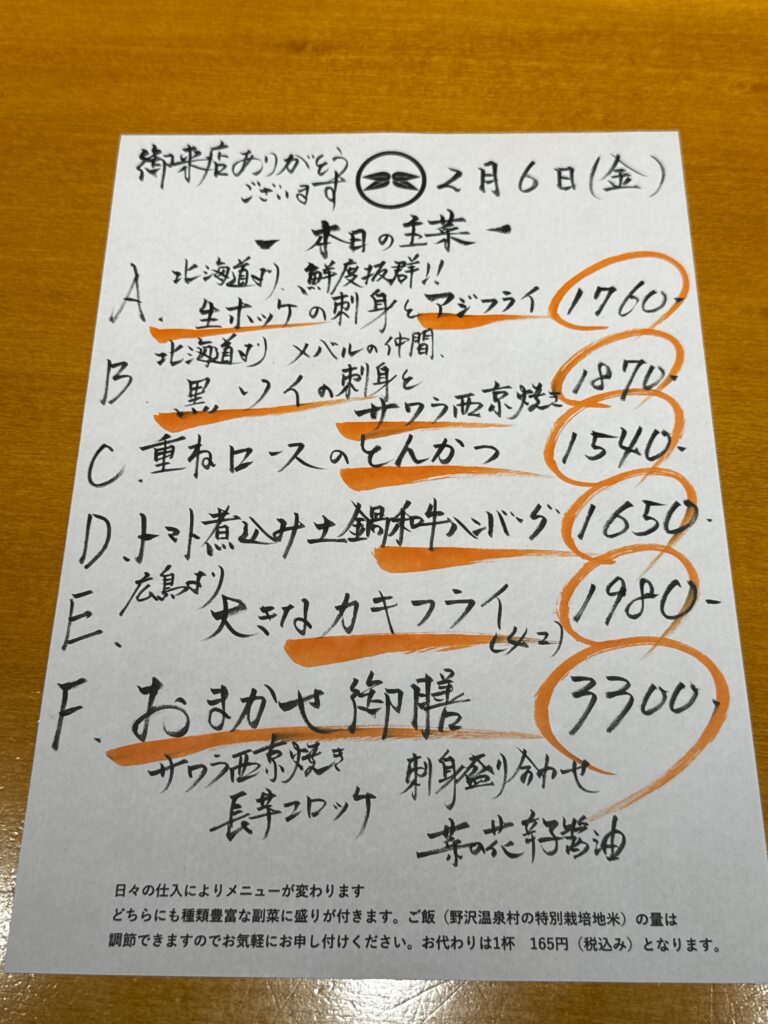 御来店ありがとう
ございます
2月6日(金)
本日の主菜
A. 北海道より、鮮度抜群!!
生ホッケの刺身とアジフライ 1760-
B 北海道より メバルの仲間、
黒ソイの刺身と 1870-
サワラ西京焼き
C. 重ねロースのとんかつ 1540-
D. トマト煮込み土鍋和牛ハンバーグ 1650-
E. 広島より
大きなカキフライ 1980-
(4コ)
F. おまかせ御膳 3300-
サワラ西京焼き 刺身盛り合わせ
長芋コロッケ
菜の花辛子醤油
日々の仕入によりメニューが変わります
どちらにも種類豊富な副菜に盛りが付きます。ご飯（野沢温泉村の特別栽培地米）の量は
調節できますのでお気軽にお申し付けください。お代わりは1杯 165円（税込み）となります。